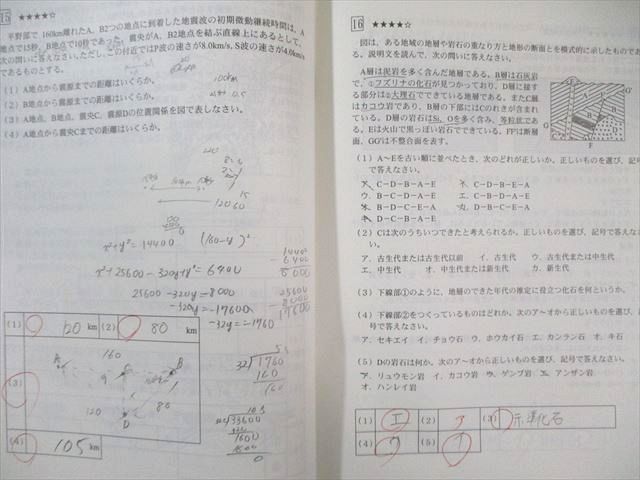 15 ★★★★☆
平野部で 160km離れたA、B2つの地点に到着した地震波の初期微動継続時間は、A
地点で15秒、B地点で10秒であった。震央がA、B2地点を結ぶ直線上にあるとして、
次の問いに答えなさい。ただし、この付近ではP波の速さが8.0km/s、S波の速さが4.0km/s
であるものとする。
(1) A地点から震源までの距離はいくらか。
(2) B地点から震源までの距離はいくらか。
(3) A地点、B地点、震央C、震源Dの位置関係を図で表しなさい。
(4) A地点から震央Cまでの距離はいくらか。
x²+y²=14400
(160-y)²
x²+25600-320y+y²=6400
25600-320y=-8000
-320y=-17600
-32y=-1760
14400
-6400
8000
25600
-8000
17600
32)1760
160
160
33600
1600
1600
0
(1) 120 km (2) 80 km
(3) A 160 B
C
120 80
D
(4) 105 km
16 ★★★★☆
図は、ある地域の地層や岩石の重なり方と地形の断面とを模式的に示したものであ
る。説明文を読んで、次の問いに答えなさい。
A層は泥岩を多く含んだ地層である。B層は石灰岩
で、①フズリナの化石が見つかっており、D層に接す
る部分は②大理石でできている地層である。またC層
はカコウ岩であり、B層の下部にはCのれきが含まれ
ている。D層の岩石はSi、Oを多く含み、等粒状であ
る。Eは火山で黒っぽい岩石でできている。FF'は断層
面、GG'は不整合面を表す。
(1) A~Eを古い順に並べたとき、次のどれが正しいか。正しいものを選び、記号
で答えなさい。
ア. C-D-B-A-E イ. C-B-D-E-A
ウ. B-C-D-A-E エ. C-B-D-A-E
オ. B-D-C-A-E カ. D-C-B-E-A
キ. D-C-B-A-E
(2) Cは次のうちいつできたと考えられるか。正しいものを選び、記号で答えなさい。
ア. 古生代または古生代以前 イ. 古生代 ウ. 古生代または中生代
エ. 中生代 オ. 中生代または新生代 カ. 新生代
(3) 下線部①のように、地層のできた年代の推定に役立つ化石を何というか。
(4) 下線部②をつくっているものはどれか。次のア~オから正しいものを選び、記
号で答えなさい。
ア. セキエイ イ. チョウ石 ウ. ホウカイ石 エ. カンラン石 オ. キ石
(5) Dの岩石は何か。次のア~オから正しいものを選び、記号で答えなさい。
ア. リュウモン岩 イ. カコウ岩 ウ. ゲンブ岩 エ. アンザン岩
オ. ハンレイ岩
(1) エ (2) ア (3) 示準化石
(4) ウ (5) イ